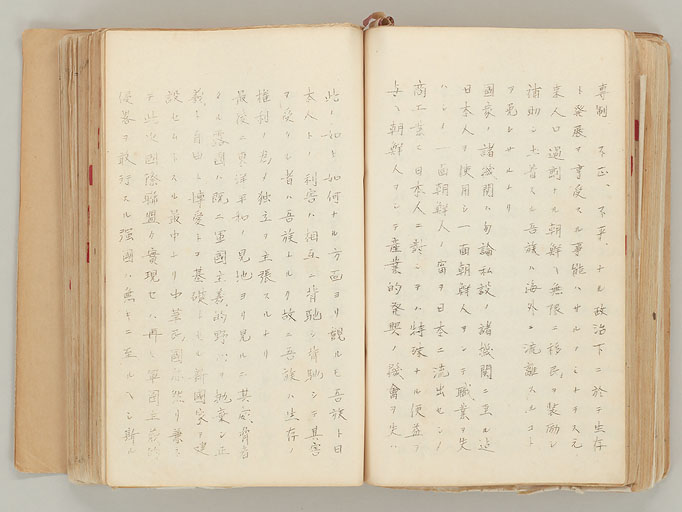 専制、不正、不平、ナル政治下ニ於テ生存
ト発展ヲ享受スル事能ハサルノミナラス元
来人口過剰ナル朝鮮ニ無限ニ移民ヲ奨励シ
補助シ土着スル吾族ハ海外ニ流離スルコト
ヲ免レサルナリ
国家ノ諸機関ハ勿論私設ノ諸機関ニ至ル迄
日本人ヲ使用シ一面朝鮮人ヲシテ職業ヲ失
ハシメ一面朝鮮人ノ富ヲ日本ニ流出セシメ
商工業ニ日本人ニ対シテハ特殊ナル便益ヲ
与ヘ朝鮮人ヲシテ産業的発興ノ機会ヲ失ハ
此ノ如ク如何ナル方面ヨリ観ルモ吾族ト日
本人トノ利害ハ相互ニ背馳シ背馳シテ其害
ヲ受クル者ハ吾族ナルカ故ニ吾族ハ生存ノ
権利ノ為ノ独立ヲ主張スルナリ
最後ニ東洋平和ノ見地ヨリ見ルニ其威脅者
ナル露国ハ既ニ軍国主義的野心ヲ抛棄シ正
義ト自由ト博愛トヲ基礎トセル新国家ヲ建
設セムトスル最中ナリ中華民国亦然リ兼ネ
テ此次国際聯盟カ実現セハ再ヒ軍国主義的
侵略ヲ敢行スル強国ハ無キニ至ルヘシ斯ル